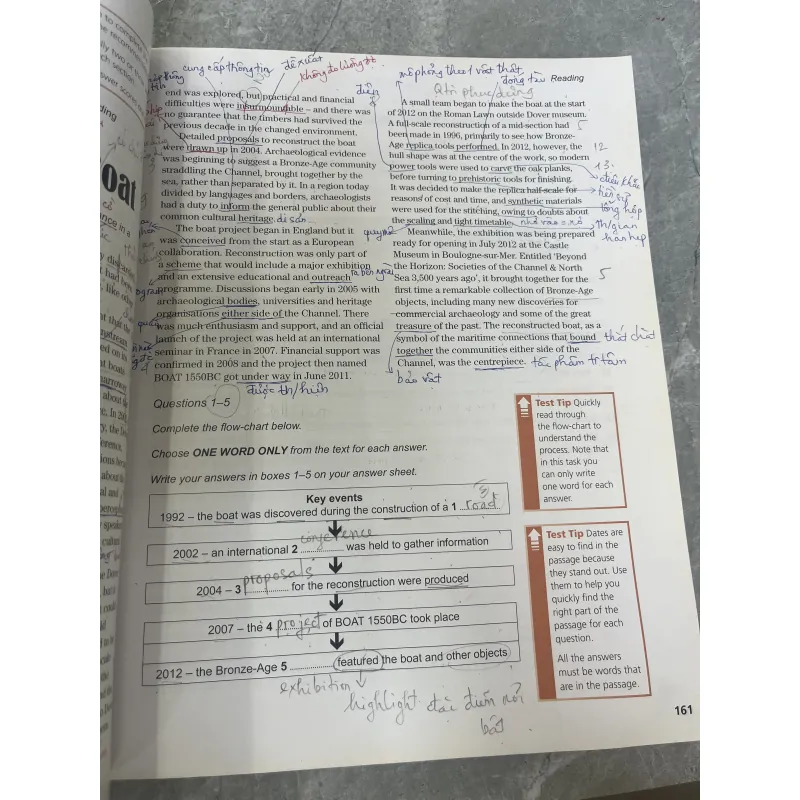 Reading
cung cấp thông tin
đề xuất
không đo lường đt
end was explored, but practical and financial
difficulties were insurmountable – and there was
no guarantee that the timbers had survived the
previous decade in the changed environment.
Detailed proposals to reconstruct the boat
were drawn up in 2004. Archaeological evidence
was beginning to suggest a Bronze-Age community
straddling the Channel, brought together by the
sea, rather than separated by it. In a region today
divided by languages and borders, archaeologists
had a duty to inform the general public about their
common cultural heritage. di sản
The boat project began in England but it
was conceived from the start as a European
collaboration. Reconstruction was only part of
a scheme that would include a major exhibition
and an extensive educational and outreach
programme. Discussions began early in 2005 with
archaeological bodies, universities and heritage
organisations either side of the Channel. There
was much enthusiasm and support, and an official
launch of the project was held at an international
seminar in France in 2007. Financial support was
confirmed in 2008 and the project then named
BOAT 1550BC got under way in June 2011.
mô phỏng theo 1 vật thật
đóng tàu
A small team began to make the boat at the start
of 2012 on the Roman Lawn outside Dover museum.
A full-scale reconstruction of a mid-section had
been made in 1996, primarily to see how Bronze-
Age replica tools performed. In 2012, however, the
hull shape was at the centre of the work, so modern
power tools were used to carve the oak planks,
before turning to prehistoric tools for finishing.
It was decided to make the replica half-scale for
reasons of cost and time, and synthetic materials
were used for the stitching, owing to doubts about
the scaling and tight timetable.
Meanwhile, the exhibition was being prepared
ready for opening in July 2012 at the Castle
Museum in Boulogne-sur-Mer. Entitled 'Beyond
the Horizon: Societies of the Channel & North
Sea 3,500 years ago', it brought together for the
first time a remarkable collection of Bronze-Age
objects, including many new discoveries for
commercial archaeology and some of the great
treasure of the past. The reconstructed boat, as a
symbol of the maritime connections that bound
together the communities either side of the
Channel, was the centrepiece.
12
13
điêu khắc
tiền sử
tổng hợp
th/gian
hạn hẹp
quy mô
5
thắt chặt
tác phẩm tr tâm
bảo vật
được th/hiện
Questions 1–5
Complete the flow-chart below.
Choose ONE WORD ONLY from the text for each answer.
Write your answers in boxes 1–5 on your answer sheet.
Key events
1992 – the boat was discovered during the construction of a 1 road
2002 – an international 2 conference was held to gather information
2004 – 3 proposals for the reconstruction were produced
2007 – the 4 project of BOAT 1550BC took place
2012 – the Bronze-Age 5 .................. featured the boat and other objects
exhibition
highlight đặc điểm nổi
bật
Test Tip Quickly
read through
the flow-chart to
understand the
process. Note that
in this task you
can only write
one word for each
answer.
Test Tip Dates are
easy to find in the
passage because
they stand out. Use
them to help you
quickly find the
right part of the
passage for each
question.
All the answers
must be words that
are in the passage.
161